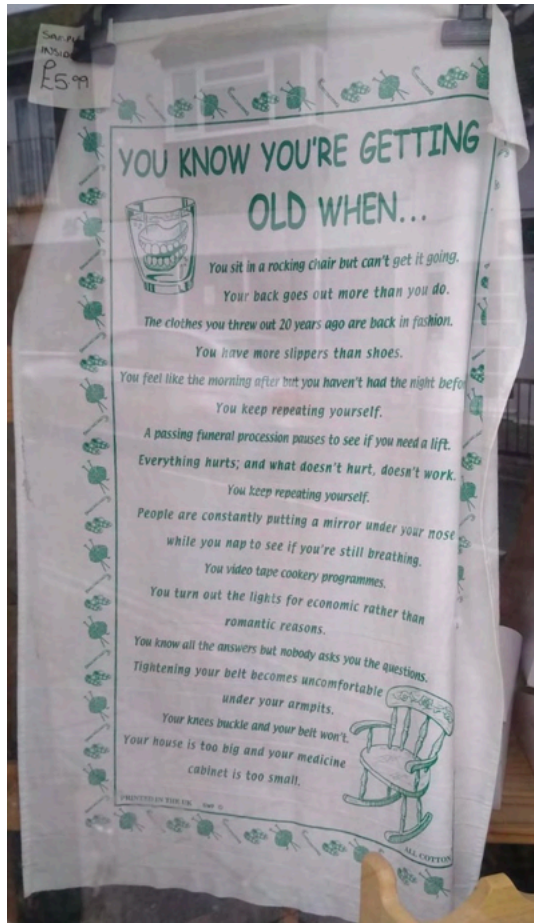 £5.99
YOU KNOW YOU'RE GETTING
OLD WHEN...
You sit in a rocking chair but can't get it going.
Your back goes out more than you do.
The clothes you threw out 20 years ago are back in fashion.
You have more slippers than shoes.
You feel like the morning after but you haven't had the night befo
You keep repeating yourself.
A passing funeral procession pauses to see if you need a lift.
Everything hurts; and what doesn't hurt, doesn't work.
You keep repeating yourself.
People are constantly putting a mirror under your nose
while you nap to see if you're still breathing.
You video tape cookery programmes.
You turn out the lights for economic rather than
romantic reasons.
You know all the answers but nobody asks you the questions.
Tightening your belt becomes uncomfortable
under your armpits.
Your knees buckle and your belt won't.
Your house is too big and your medicine
cabinet is too small.
PRINTED IN THE UK
ALL COTTON